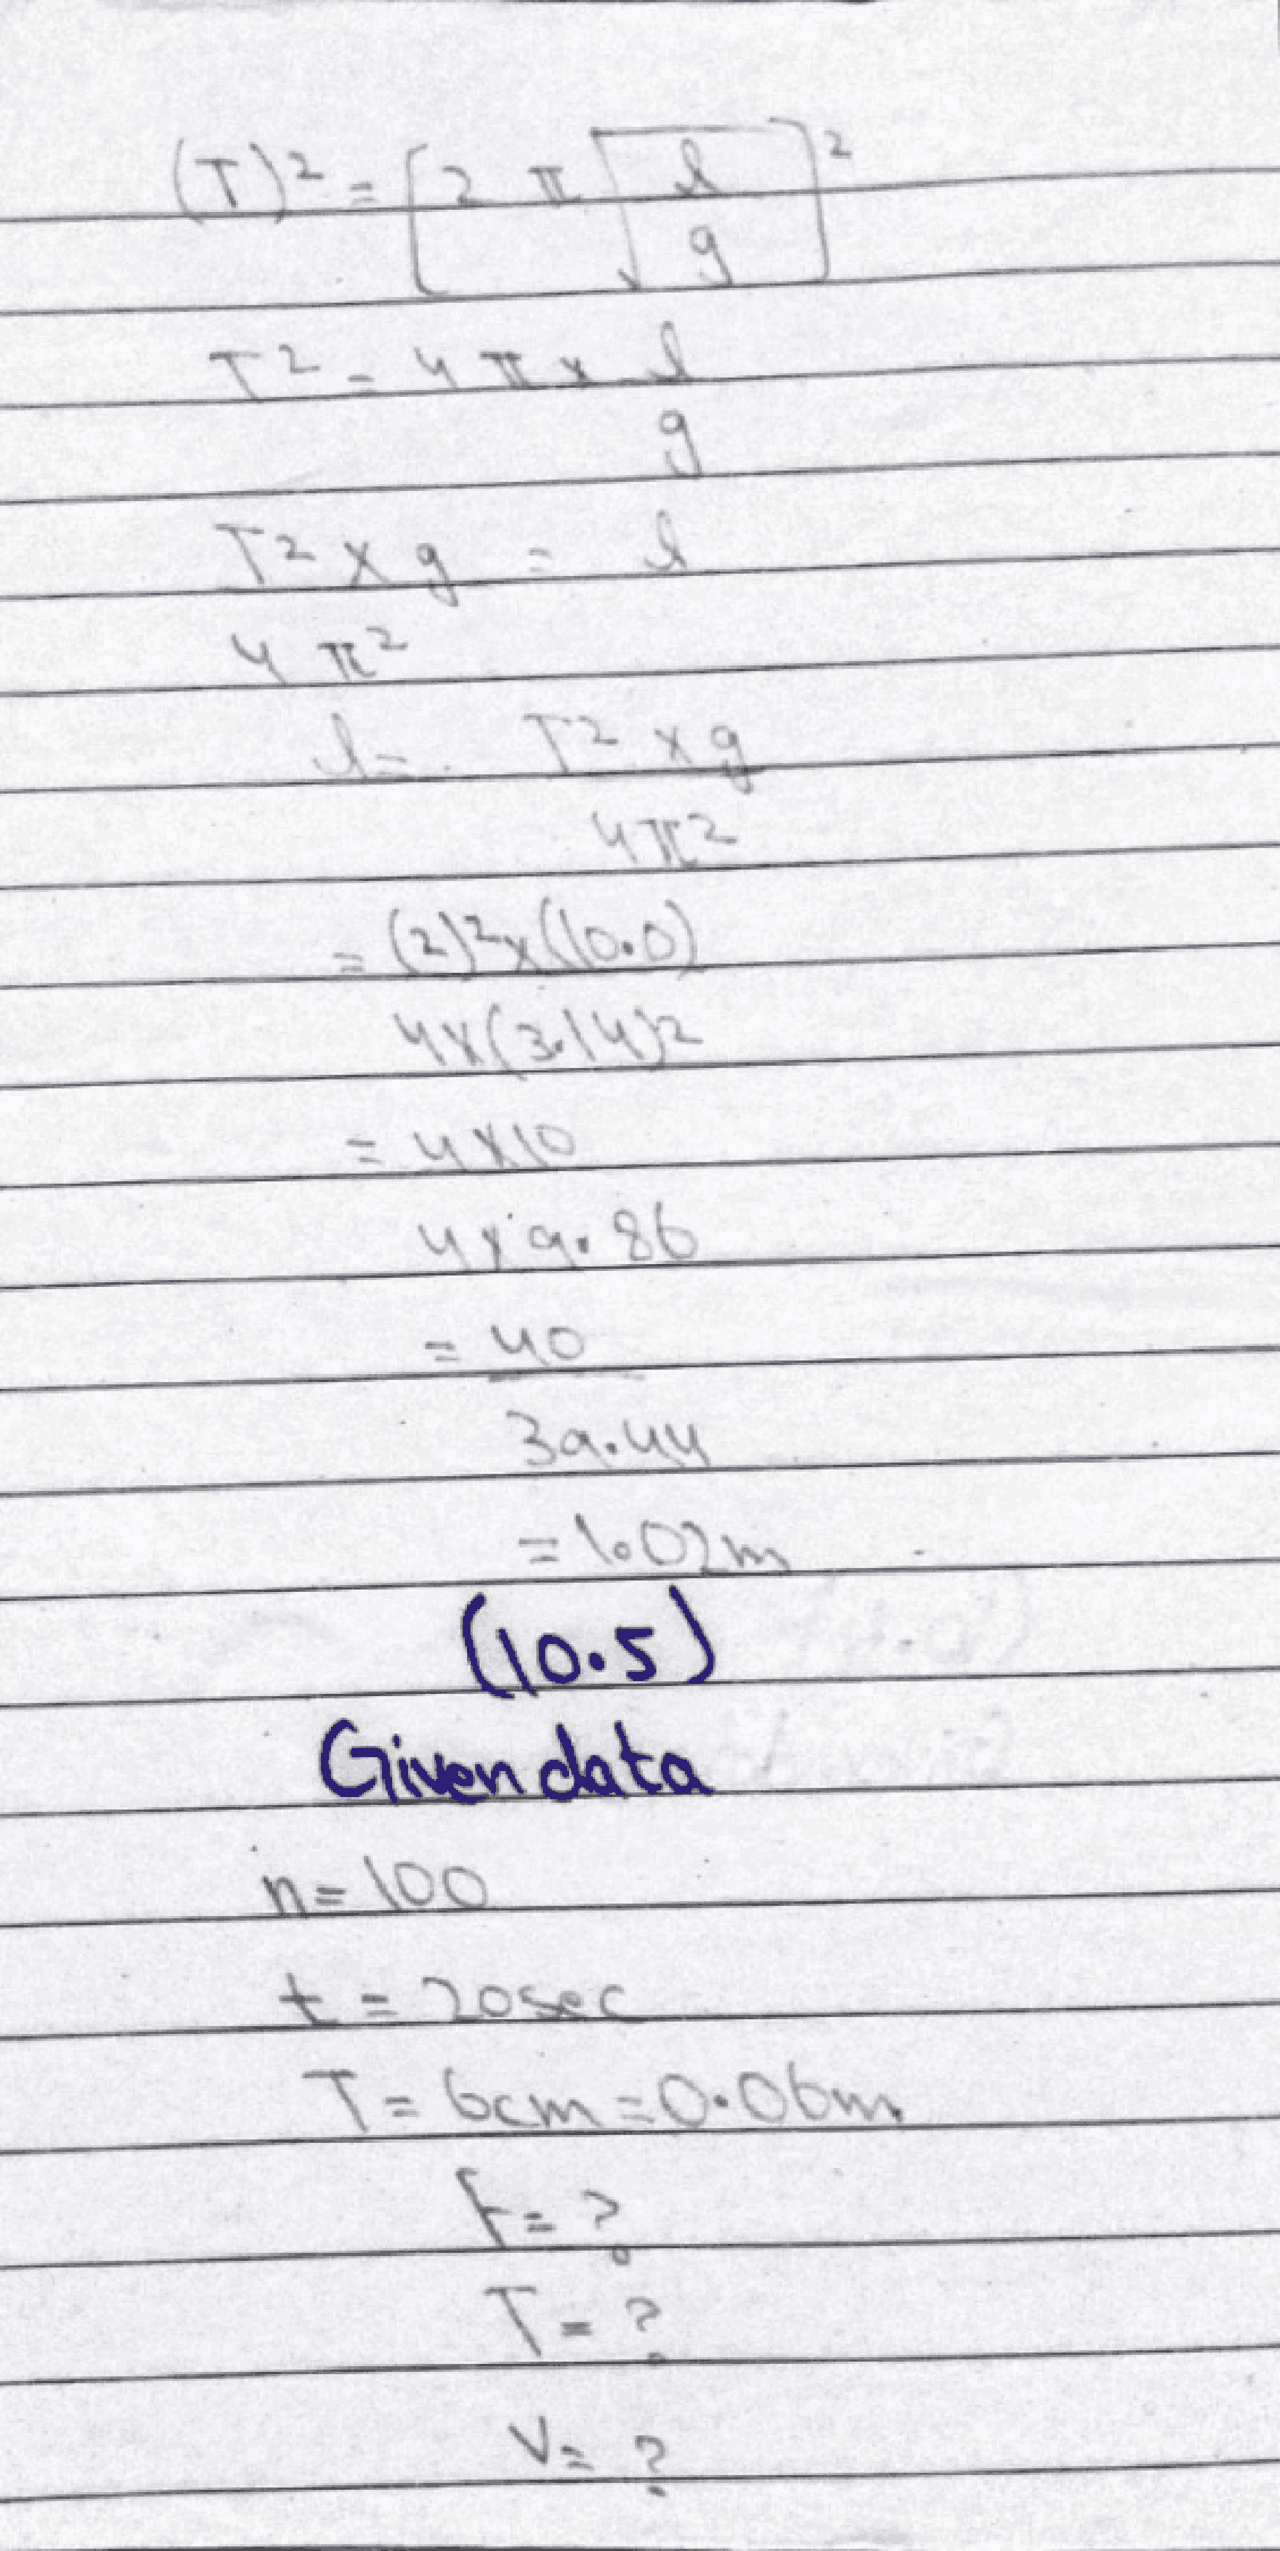 (T)² = [2 π √ l
g]²
T² = 4 π x l
g
T² x g = l
4 π²
l = T² x g
4π²
= (2)² x (10.0)
4x(3.14)²
= 4x10
4 x 9.86
= 40
39.44
= 1.02m
(10.5)
Given data
n = 100
t = 20sec
T = 6cm = 0.06m
F = ?
T = ?
V = ?